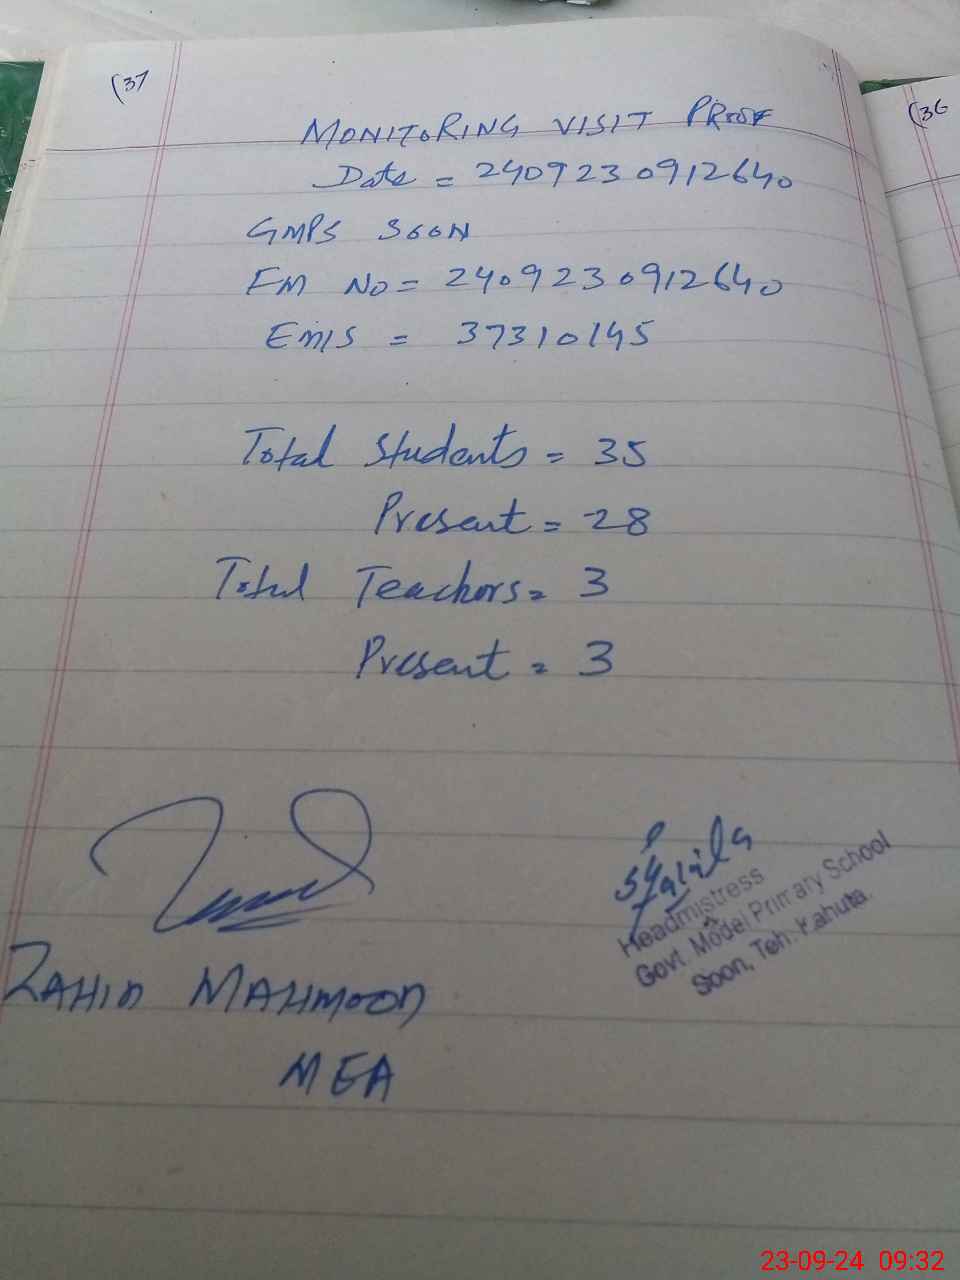 (37
(36
MONITORING VISIT PROOF
Date = 2409230912640
GMPS SOON
EM NO = 2409230912640
EMIS = 37310145
Total Students = 35
Present = 28
Total Teachers = 3
Present = 3
Headmistress
Govt. Model Primary School
Soon, Teh. Kahuta.
ZAHID MAHMOOD
MEA
23-09-24 09:32